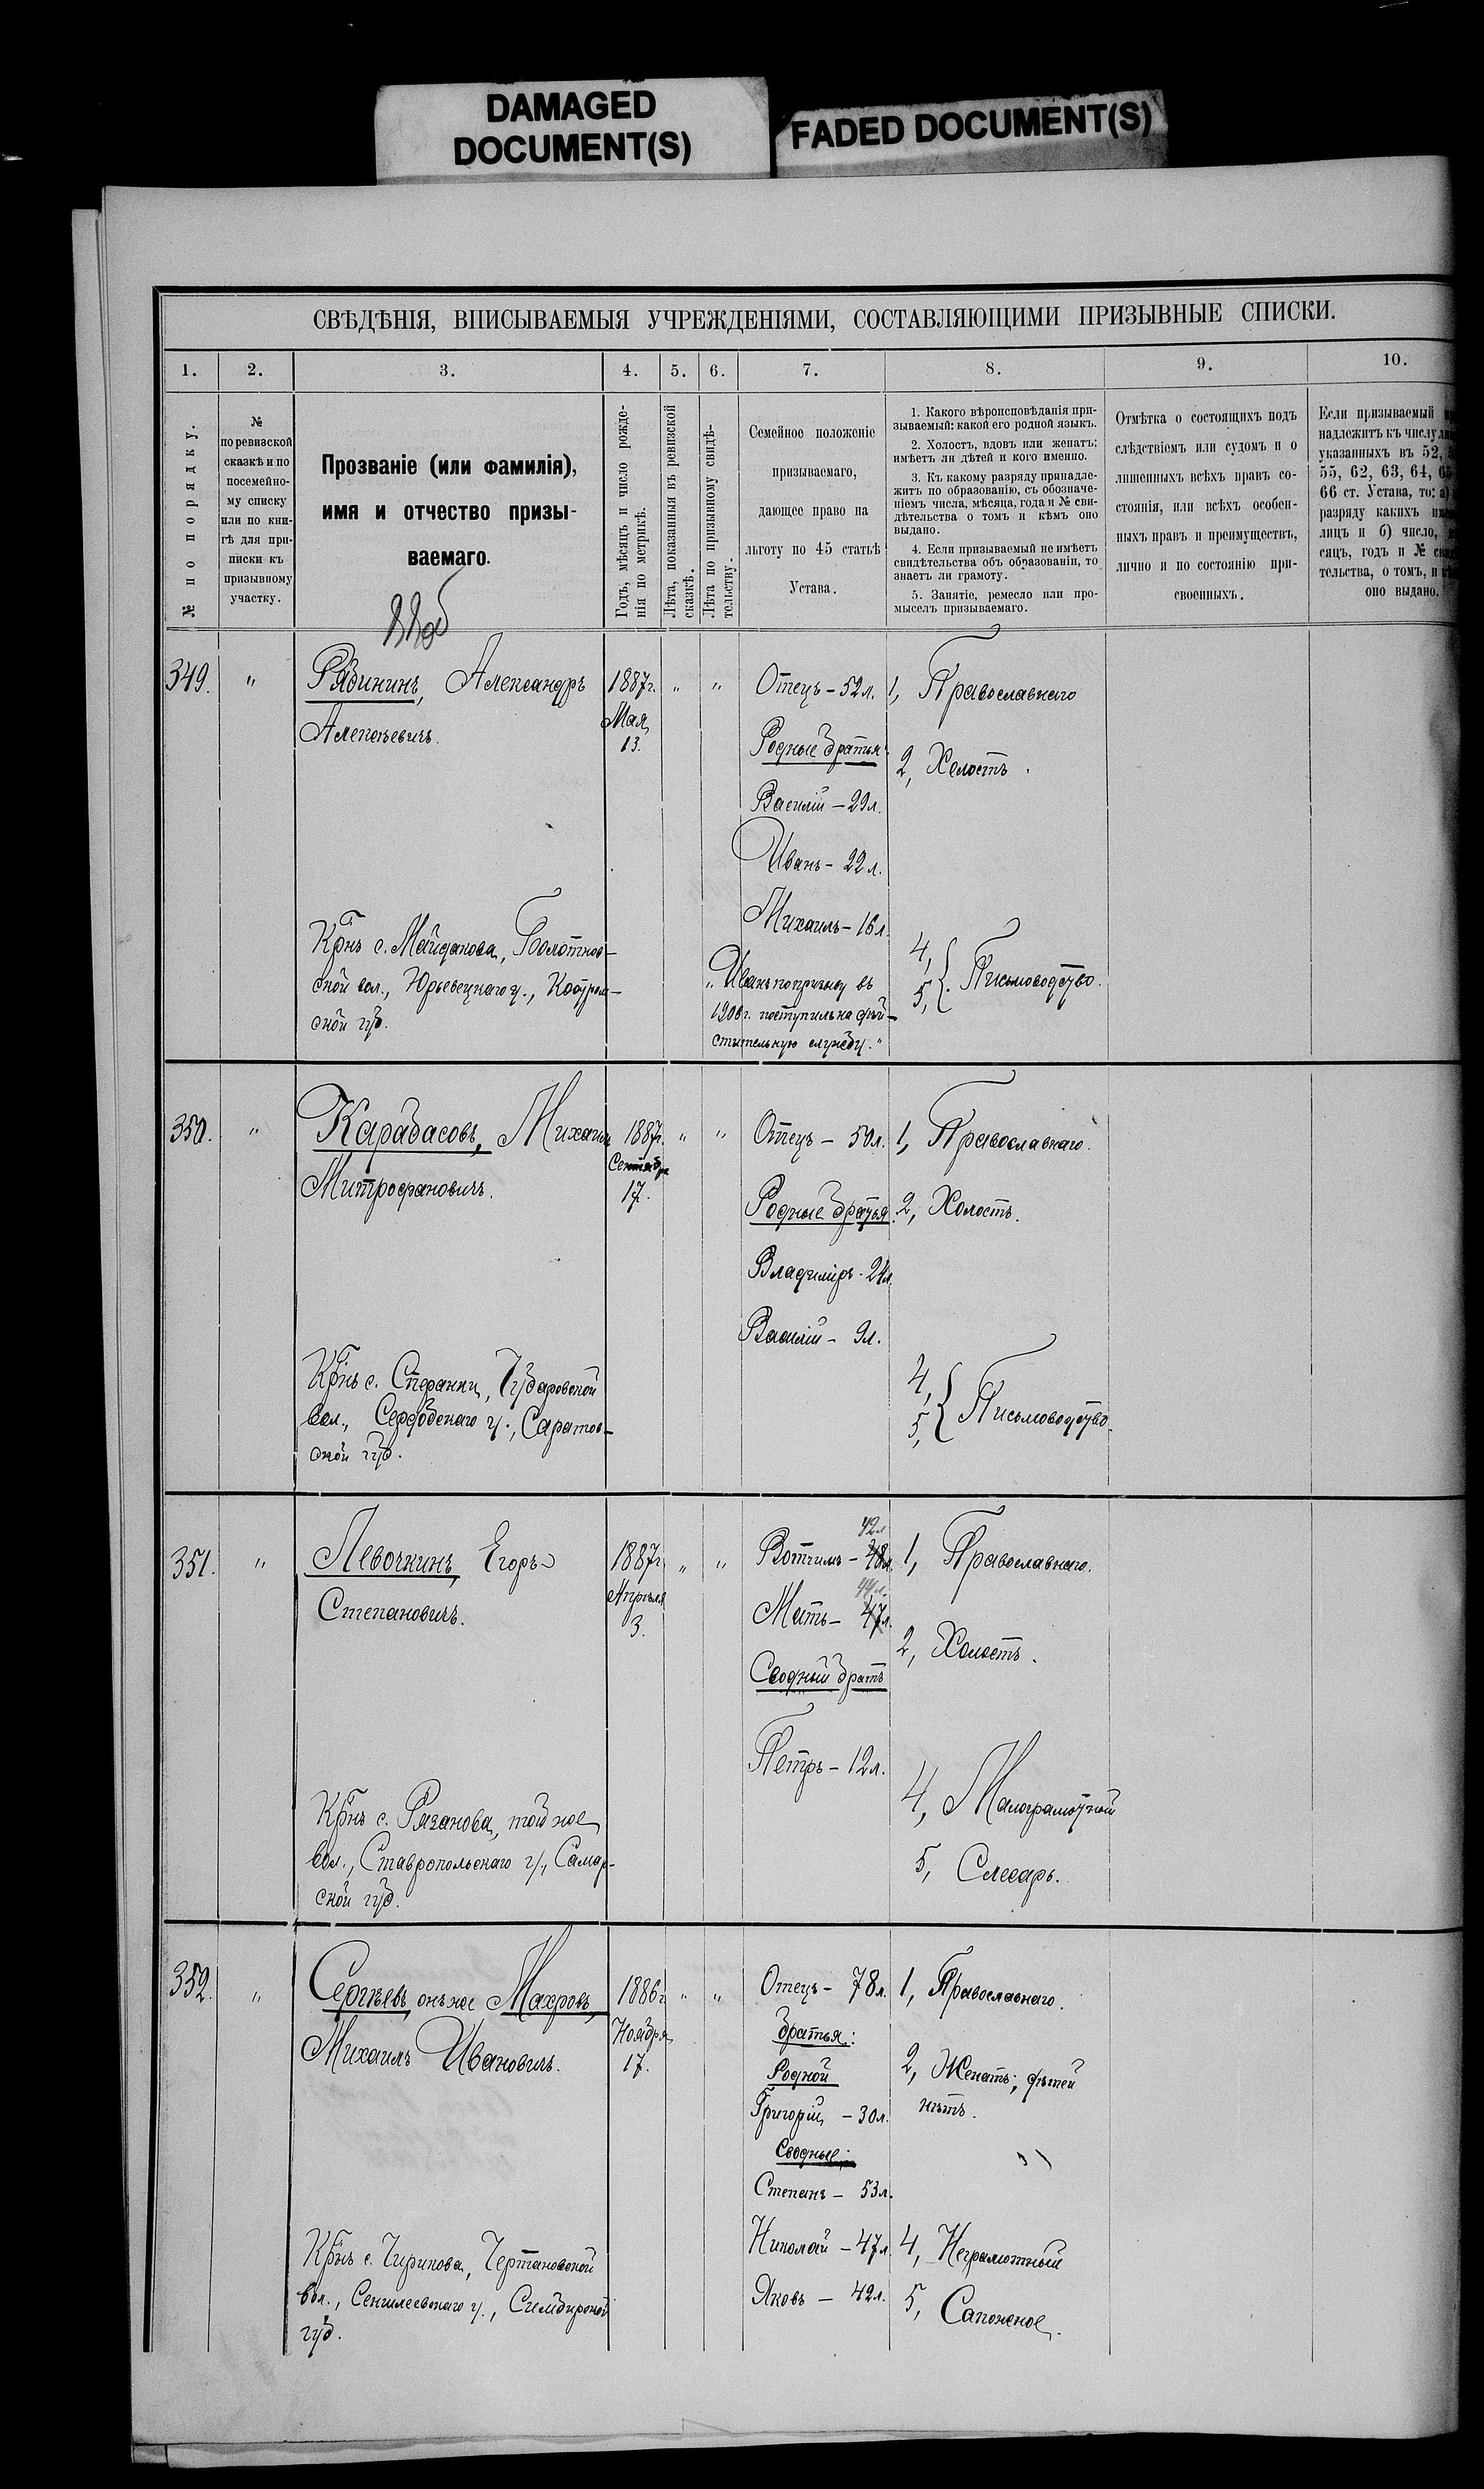 DAMAGED
DOCUMENT(S)
FADED DOCUMENT(S)
СВѢДѢНІЯ, ВПИСЫВАЕМЫЯ УЧРЕЖДЕНІЯМИ, СОСТАВЛЯЮЩИМИ ПРИЗЫВНЫЕ СПИСКИ.
1. 2. 3. 4. 5. 6. 7. 8. 9. 10.
№ по порядку.
№
по ревизской
сказкѣ и по
посемейно-
му списку
или по кни-
гѣ для при-
писки къ
призывному
участку.
Прозваніе (или фамилія),
имя и отчество призы-
ваемаго.
Годъ, мѣсяцъ и число рожде-
нія по метрикѣ.
Лѣта, показанныя въ ревизской
сказкѣ.
Лѣта по призывному свидѣ-
тельству.
Семейное положеніе
призываемаго,
дающее право на
льготу по 45 статьѣ
Устава.
1. Какого вѣроисповѣданія при-
зываемый; какой его родной языкъ.
2. Холостъ, вдовъ или женатъ;
имѣетъ ли дѣтей и кого именно.
3. Къ какому разряду принадле-
житъ по образованію, съ обозначе-
ніемъ числа, мѣсяца, года и № сви-
дѣтельства о томъ и кѣмъ оно
выдано.
4. Если призываемый не имѣетъ
свидѣтельства объ образованіи, то
знаетъ ли грамоту.
5. Занятіе, ремесло или про-
мыселъ призываемаго.
Отмѣтка о состоящихъ подъ
слѣдствіемъ или судомъ и о
лишенныхъ всѣхъ правъ со-
стоянія, или всѣхъ особен-
ныхъ правъ и преимуществъ,
лично и по состоянію при-
своенныхъ.
Если призываемый
надлежитъ къ числу
указанныхъ въ 52,
55, 62, 63, 64, 65
66 ст. Устава, то: а)
разряду какихъ
лицъ и б) число,
сяцъ, годъ и №
тельства, о томъ, и
оно выдано.
349. " Рябининъ, Александръ
Алексѣевичъ.
1887г.
Мая
13.
" "
Отецъ – 52л.
Родные братья
Василій – 29л.
Иванъ – 22л.
Михаилъ – 16л.
"Иванъ по призыву въ
1906г. поступилъ на дѣй-
ствительную службу."
1, Православнаго
2, Холостъ.
4,
5, } Письмоводство.
Крнъ с. Майдакова, Болотнов-
ской вол., Юрьевецкаго у., Костром-
ской губ.
350. " Карабасовъ, Михаилъ
Митрофановичъ.
1887г.
Сентября
17.
" "
Отецъ – 50л.
Родные братья.
Владиміръ - 24л.
Василій – 9л.
1, Православнаго.
2, Холостъ.
4,
5, { Письмоводство.
вол., Сердобскаго у., Саратов-
ской губ.
351. " Левочкинъ, Егоръ
Степановичъ.
1887г
Апрѣля
3.
" "
42л
Вотчимъ – 48л.
44л.
Мать – 47л.
Сводный братъ
Петръ – 12л.
1, Православнаго.
2, Холостъ.
4, Малограмотный
5, Слесарь.
Крнъ с. Рязанова, той же
вол., Ставропольскаго у., Самар-
ской губ.
352. " Сергѣевъ, онъ же Махровъ,
Михаилъ Ивановичъ.
1886г.
Ноября
17.
" "
Отецъ – 78л.
братья:
Родной
Григорій – 30л.
Сводные:
Степанъ – 53л.
Николай – 47л.
Яковъ – 42л.
1, Православнаго.
2, Женатъ; дѣтей
нѣтъ.
4, Неграмотный
5, Сапожное.
Крнъ с. Чирикова, Чертановской
вол., Сенгилеевскаго у., Симбирской
губ.